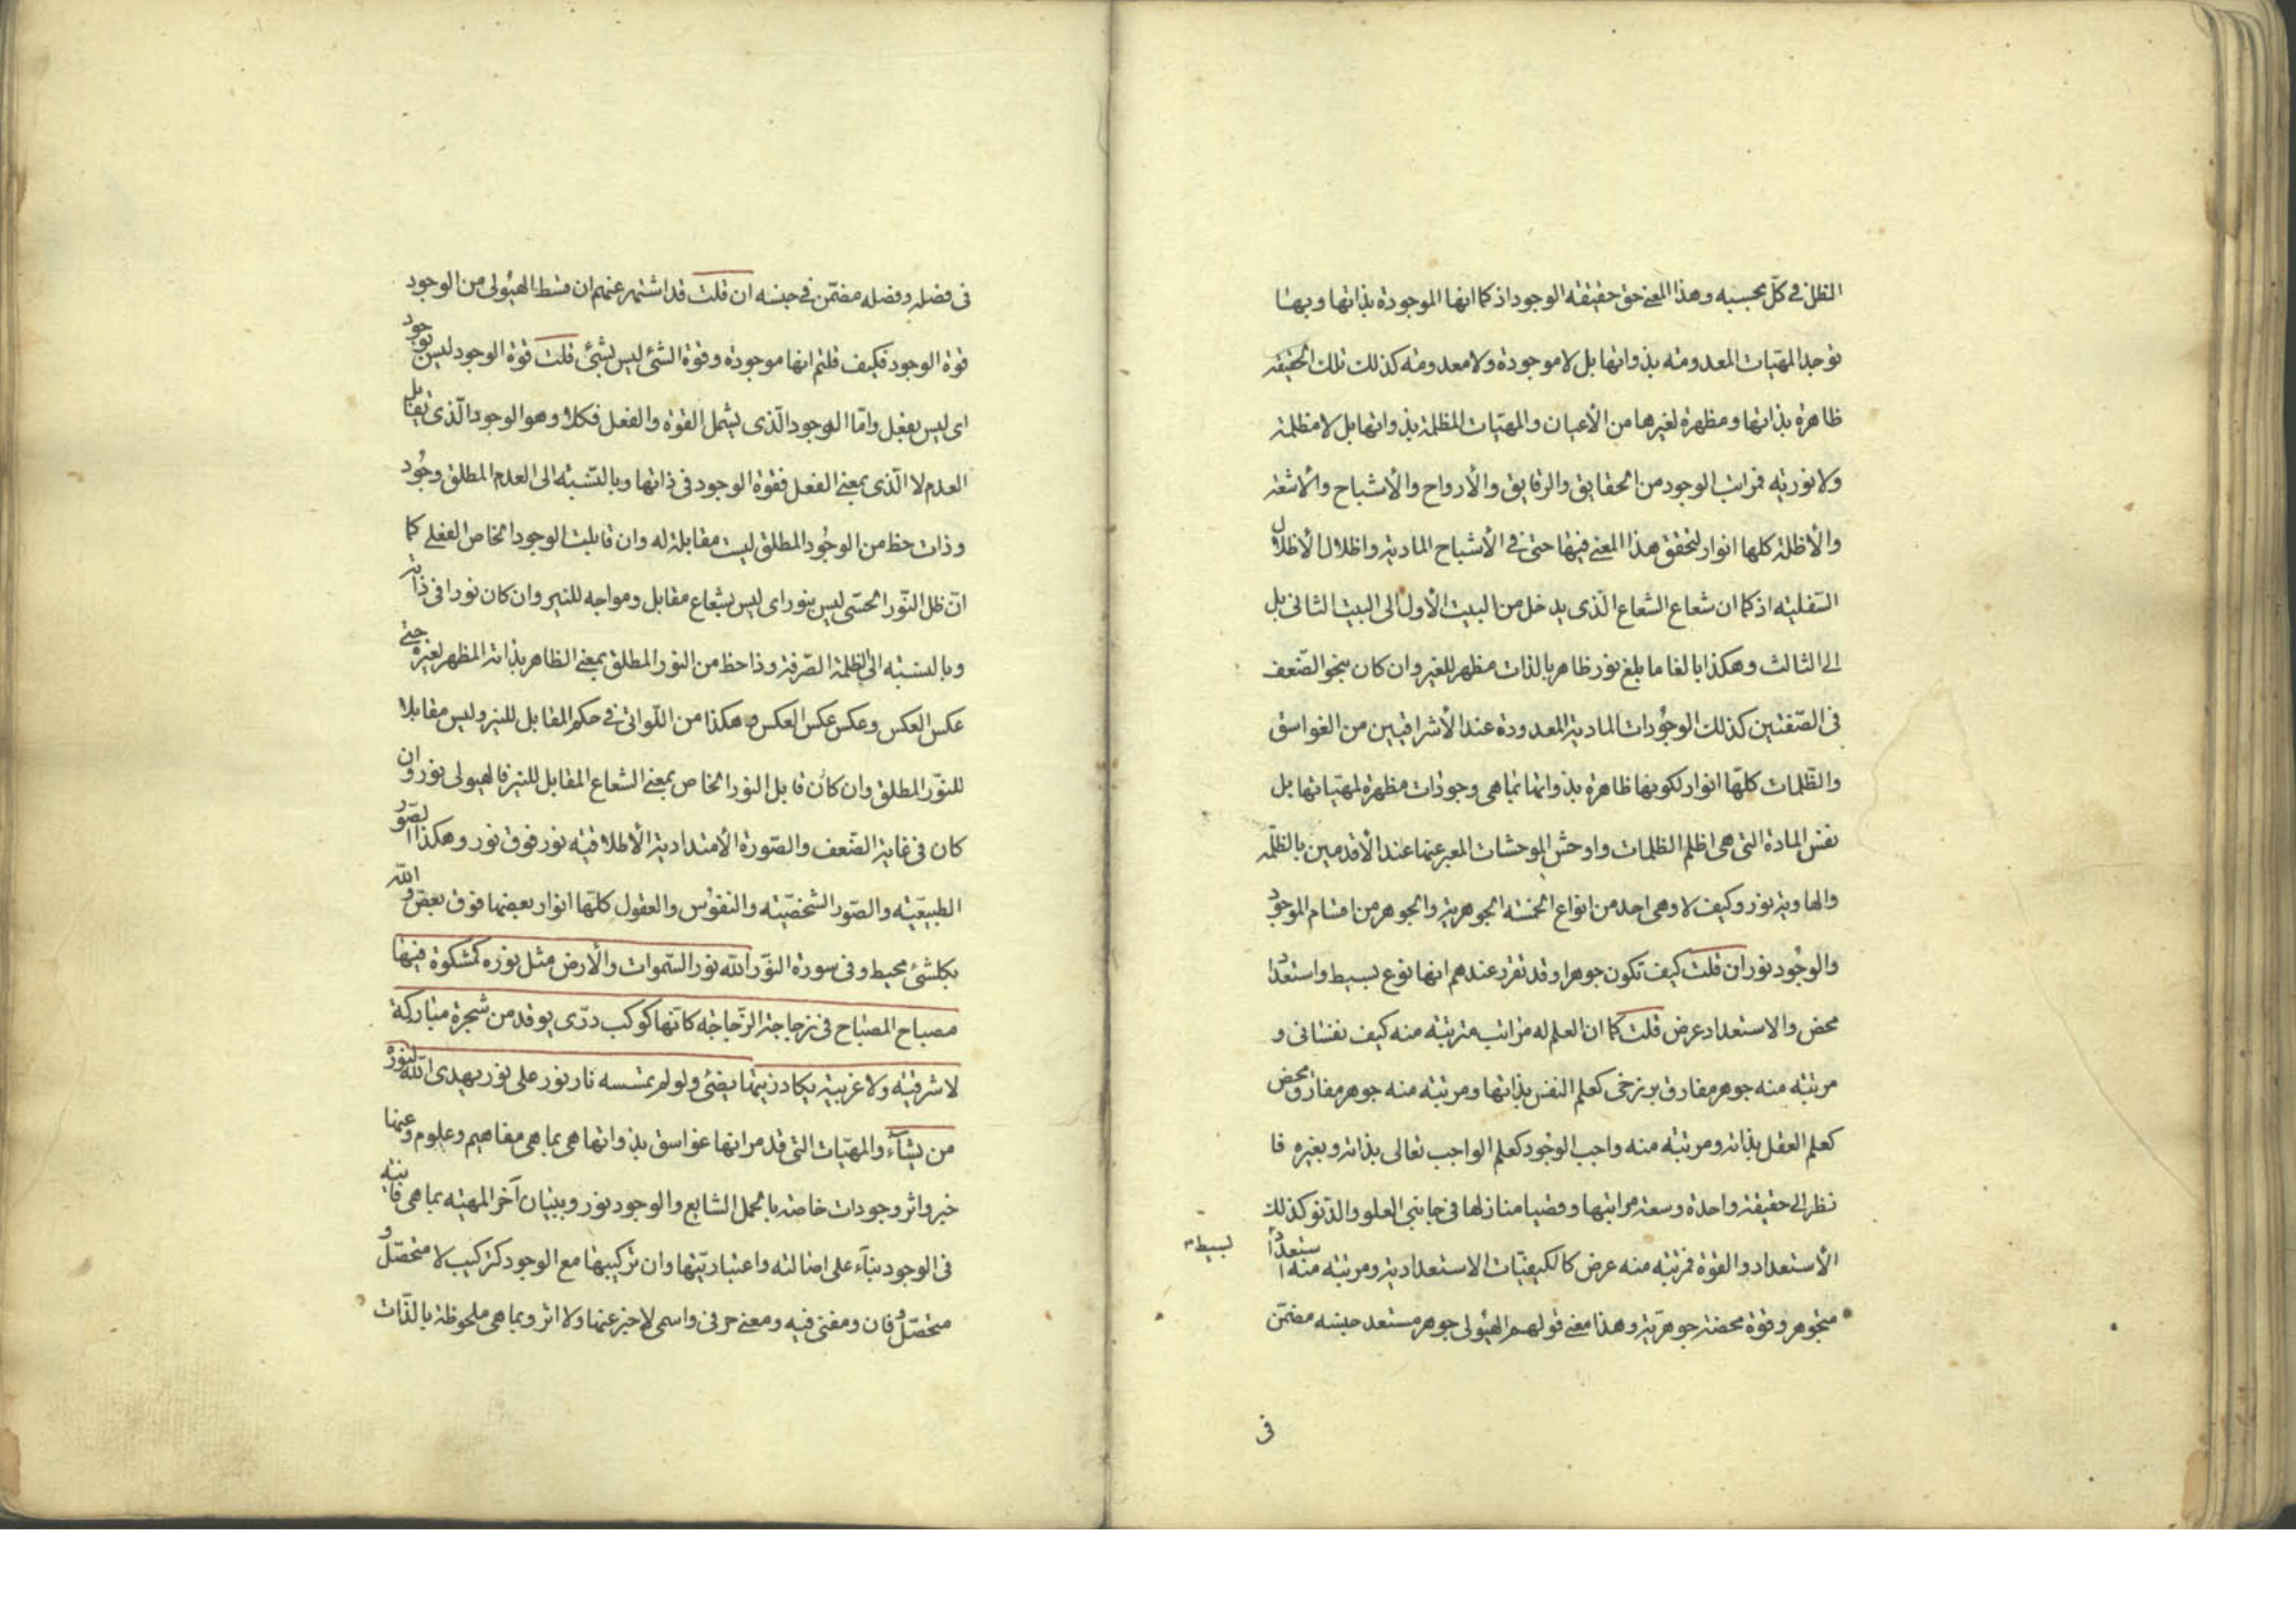 الظل فى كلّ بحسبه وهذا المعنى حق حقيقه الوجود اذ كما انها الموجودة بذاتها وبها
توجد المهيّات المعدومه بذواتها بل لا موجودة ولا معدومه كذلك تلك الحقيقه
ظاهرة بذاتها ومظهرة لغيرها من الأعيان والمهيّات المظلمة بذواتها بل لا مظلمة
ولا نوريه فمراتب الوجود من الحقايق والرقايق والأرواح والأشباح والأشعّة
والأظلة كلها انوار لتحقق هذا المعنى فيها حتى فى الأشباح الماديّة واظلال الأظلال
السّفليّه اذ كما ان شعاع الشعاع الّذى يدخل من البيت الأول الى البيت الثانى بل
الى الثالث وهكذا بالغا ما بلغ نور ظاهر بالذات مظهر للغير وان كان بنحو الضّعف
فى الصّفتين كذلك الوجُودات الماديّة المعدودة عند الأشراقيين من الغواسق
والظّلمات كلّها انوار لكونها ظاهرة بذواتها بما هى وجودات مظهرة لمهيّاتها بل
نفس المادة التى هى اظلم الظلمات واوحش الموحشات المعبر عنها عند الأقدمين بالظلّمه
والهاوية نور وكيف لا وهى احد من انواع الخمسه الجوهرية والجوهر من اقسام الموجود
والوجُود نور ان قلت كيف تكون جوهرا وقد تقرّر عندهم انها نوع بسيط واستعداد
محض والاستعداد عرض قلت كما ان العلم له مراتب مرتبه منه كيف نفسانى و
مرتبه منه جوهر مفارق برزخى كعلم النفس بذاتها ومرتبه منه جوهر مفارق محض
كعلم العقل بذاته ومرتبه منه واجب الوجود كعلم الواجب تعالى بذاته وبغيره فا
نظر الى حقيقة واحدة وسعة مراتبها وقضيا منازلها فى جانبى العلو والدّنو كذلك
الأستعداد والقوّة فمرتبه منه عرض كالكيفيّات الاستعداديّة ومرتبه منه استعداد
بسيط
متجوهر وقوة محضة جوهريّة وهذا معنى قولهم الهيُولى جوهر مستعد جنسه مضمّن
فى
فى فصله وفصله مضمّن فى جنسه ان قلت قد اشتهر عنهم ان قسط الهيُولى من الوجود
قوة الوجود فكيف قلتم انها موجودة وقوة الشئ ليس بشئ قلت قوة الوجود ليس بوجود
اى ليس بفعل وامّا الوجود الّذى يشمل القوة والفعل فكلا وهو الوجود الّذى يقابل
العدم لا الّذى بمعنى الفعل فقوة الوجود فى ذاتها وبالنّسبة الى العدم المطلق وجُود
وذات حظ من الوجُود المطلق ليست مقابلة له وان قابلت الوجود الخاص الفعلى كما
انّ ظل النّور الحسّى ليس بنور اى ليس بشعاع مقابل ومواجه للنير وان كان نورا فى ذاته
وبالنسبه الى الظلمة الصّرفة وذا حظ من النور المطلق بمعنى الظاهر بذاته المظهر لغيره حتى
عكس العكس وعكس عكس العكس وهكذا من اللّواتى فى حكم المقابل للنير وليس مقابلا
للنّور المطلق وان كان قابل النور الخاص بمعنى الشعاع المقابل للنير فالهيولى نور وان
كان فى غاية الضّعف والصّورة الأمتداديّة الأطلاقيّه نور فوق نور وهكذا الصّور
الطبيعيّه والصّور الشخصيّه والنفوس والعقول كلّها انوار بعضها فوق بعض والله
بكلشئ محيط وفى سورة النّور اللّه نور السّموات والأرض مثل نوره كمشكوة فيها
مصباح المصباح فى زجاجة الزّجاجه كانّها كوكب درّى يوقد من شجرة مباركة
لا شرقيّه ولا غربية يكاد زيتها يضئ ولو لم تمسسه نار نور على نور يهدى اللّه لنوره
من يشآء والمهيّات التى قد مر انها غواسق بذواتها هى بما هى مفاهيم وعلوم وعنها
خبر واثر وجودات خاصة بالحمل الشايع والوجود نور وببيان آخر المهيّه بما هى فانية
فى الوجود بنآء على اصالته واعتباريّتها وان تركيبها مع الوجود كتركيب لا متحصّل و
متحصّل وفان ومفنى فيه ومعنى حرفى واسمى لا خبر عنها ولا اثر وبما هى ملحوظة بالذّات